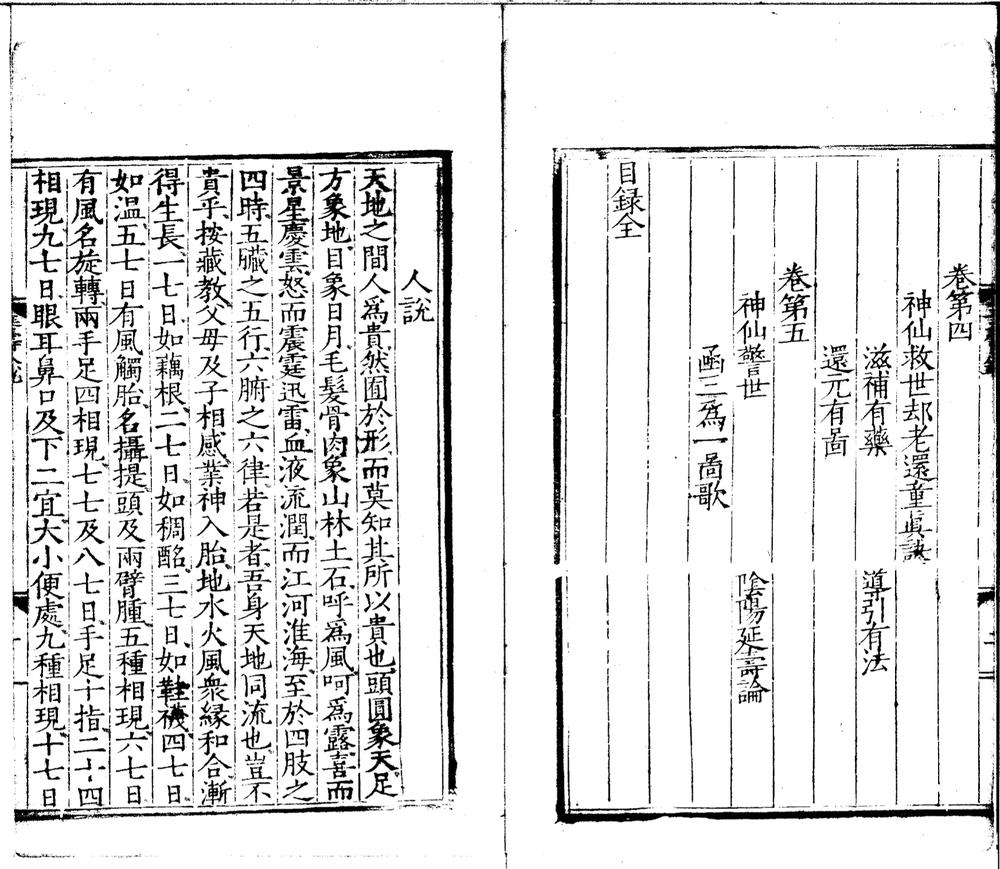 卷第四
神仙救世却老還童眞訣
滋補有藥　導引有法
還元有啚
卷第五
神仙警世　陰陽延壽論
函三爲一啚歌
目録全
人說
天地之間人爲貴然囿於形而莫知其所以貴也頭圓象天足
方象地目象日月毛髮骨肉象山林土石呼爲風呵爲露喜而
景星慶雲怒而震霆迅雷血液流潤而江河淮海至於四肢之
四時五臟之五行六腑之六律若是者吾身天地同流也豈不
貴乎按藏教父母及子相感業神入胎地水火風衆緣和合漸
得生長一七日如藕根二七日如稠酩三七日如鞋襪四七日
如温五七日有風觸胎名攝提頭及兩臂膧五種相現六七日
有風名旋轉兩手足四相現七七及八七日手足十指二十四
相現九七日眼耳鼻口及下二宜大小便處九種相現十七日